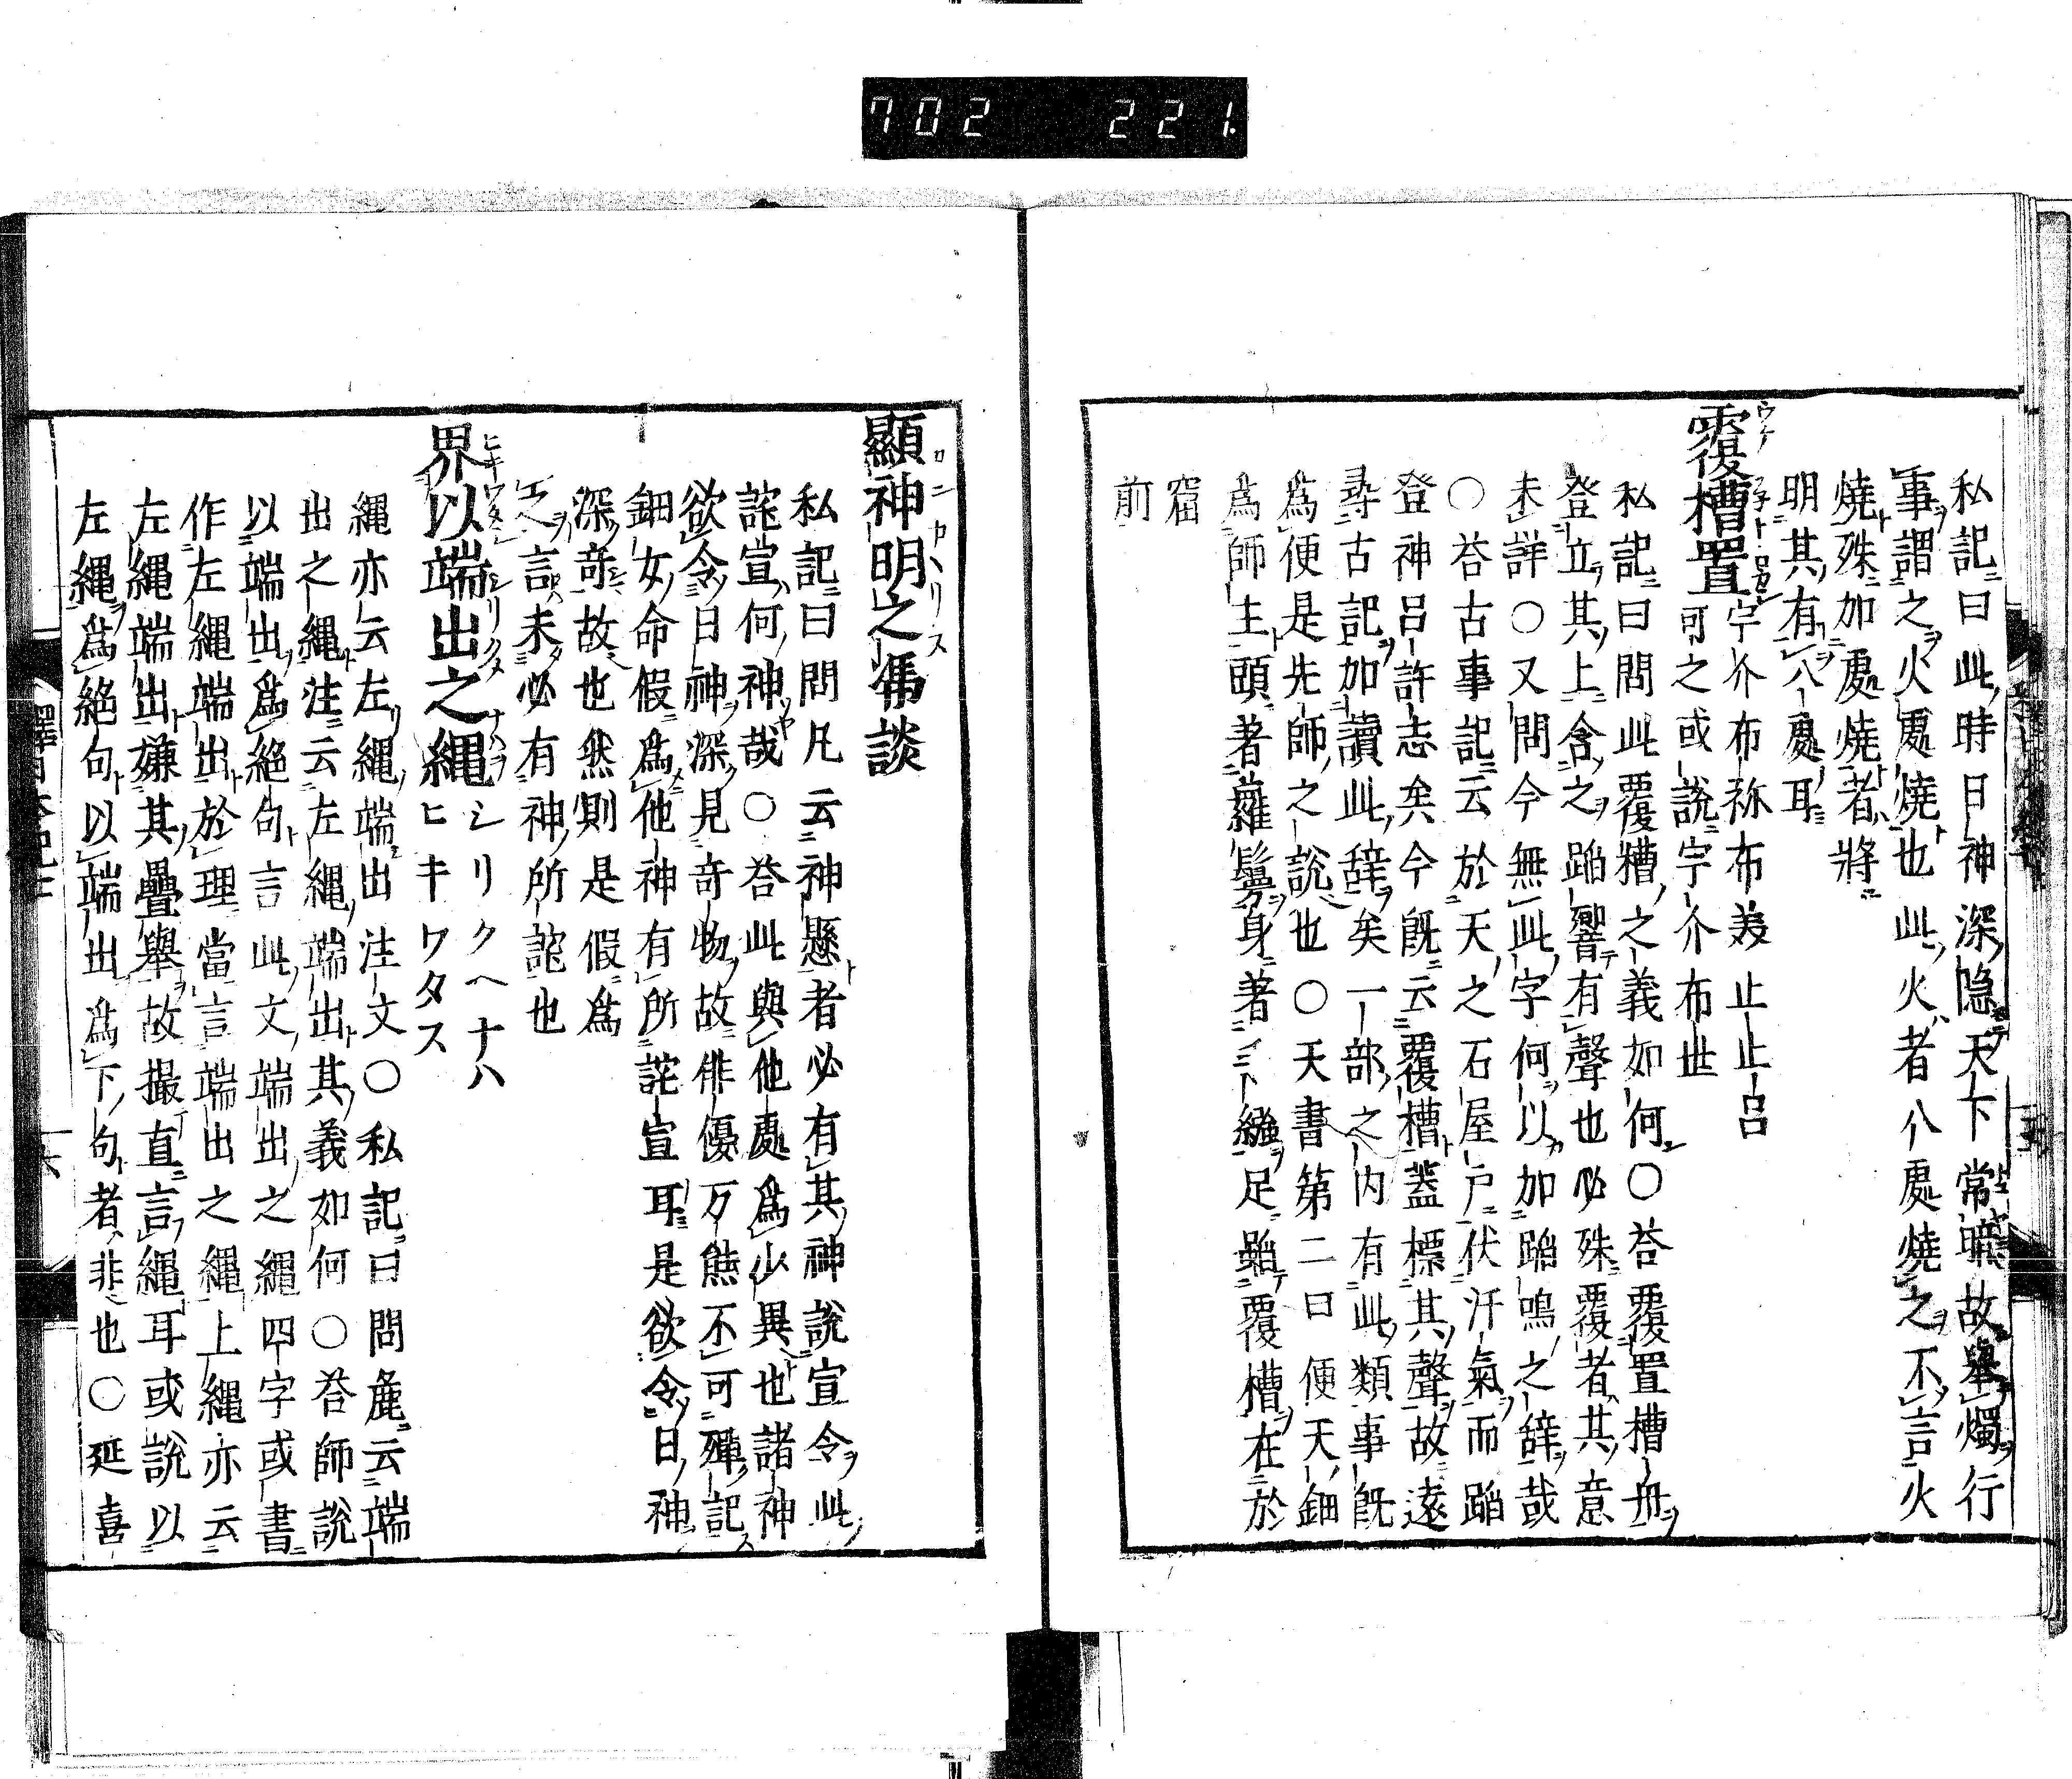 702 221
私記曰此時日神深隠天下常曚故舉燭行
事謂之火處燒也此火者八處燒之不言火
燒殊加處燒者將
明其有八處耳
覆槽置
宇介布祢布美止止呂
可之或說宇介布世
私記曰問此覆槽之義如何○荅覆置槽舟
登立其上含之蹈響有聲也必殊覆者其意
未詳○又問今無此字何以加蹈鳴之辞哉
○荅古事記云於天之石屋戶伏汗氣而蹈
登神呂許志矣今旣云覆槽蓋標其聲故遠
尋古記加讀此辞矣一部之内有此類事旣
爲便是先師之說也○天書第二曰便天鈿
爲師主頭著蘿鬘身著繦足蹈覆槽在於
窟
前
顯神明之馮談
私記曰問凡云神懸者必有其神說宣令此
詫宣何神哉○荅此與他處爲少異也諸神
欲令日神深見奇物故俳優万態不可殫記
鈿女命假爲他神有所詫宣耳是欲令日神
深奇故也然則是假爲
之言未必有神所詫也
界以端出之縄
シリクヘナハ
ヒキワタス
縄亦云左縄端出注文○私記曰問麁云端
出之縄注云左縄端出其義如何○荅師說
以端出爲絕句言此文端出之縄四字或書
作左縄端出於理當言端出之縄上縄亦云
左縄端出嫌其疊舉故撮直言縄耳或說以
左縄爲絕句以端出爲下句者非也○延喜